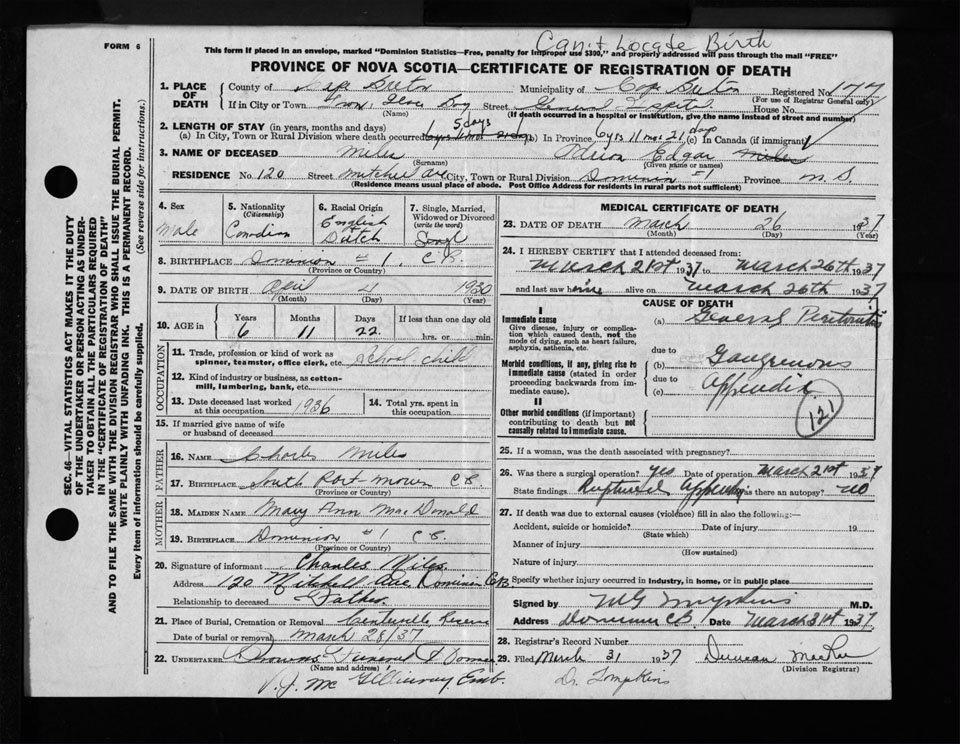 FORM 6
Can't Locate Birth
This form if placed in an envelope, marked "Dominion Statistics—Free, penalty for improper use $300," and properly addressed will pass through the mail "FREE"
PROVINCE OF NOVA SCOTIA—CERTIFICATE OF REGISTRATION OF DEATH
1. PLACE OF DEATH County of Cape Breton Municipality of Cape Breton Registered No. 177
(For use of Registrar General only)
If in City or Town Glace Bay Street General Hospital House No.
(Name) (If death occurred in a hospital or institution, give the name instead of street and number)
2. LENGTH OF STAY (in years, months and days)
(a) In City, Town or Rural Division where death occurred 5 days (b) In Province 6 yrs 11 mos 21 days (c) In Canada (if immigrant)
3. NAME OF DECEASED Miles Edgar Miles
(Surname) (Given name or names)
RESIDENCE No. 120 Street Mitchell Ave City, Town or Rural Division Dominion #1 Province N. S.
(Residence means usual place of abode. Post Office Address for residents in rural parts not sufficient)
4. Sex Male
5. Nationality (Citizenship) Canadian
6. Racial Origin English + Dutch
7. Single, Married, Widowed or Divorced (write the word) Single
8. BIRTHPLACE Dominion #1, C.B.
(Province or Country)
9. DATE OF BIRTH April 4 1930
(Month) (Day) (Year)
10. AGE in Years Months Days If less than one day old
6 11 22 hrs. or min.
OCCUPATION
11. Trade, profession or kind of work as spinner, teamster, office clerk, etc. School child
12. Kind of industry or business, as cotton-mill, lumbering, bank, etc.
13. Date deceased last worked at this occupation 1936
14. Total yrs. spent in this occupation
15. If married give name of wife or husband of deceased
FATHER
16. NAME Charles Miles
17. BIRTHPLACE South Port Morien C B
(Province or Country)
MOTHER
18. MAIDEN NAME Mary Ann MacDonald
19. BIRTHPLACE Dominion #1 C B.
(Province or Country)
20. Signature of informant Charles Miles
Address 120 Mitchell Ave Dominion C B
Relationship to deceased Father
21. Place of Burial, Cremation or Removal Centerville Reserve
Date of burial or removal March 28/37
22. UNDERTAKER
(Name and address)
V. J. McGillivray Emb.
MEDICAL CERTIFICATE OF DEATH
23. DATE OF DEATH March 26 1937
(Month) (Day) (Year)
24. I HEREBY CERTIFY that I attended deceased from:
March 21st 1937 to March 26th 1937
and last saw him alive on March 26th 1937
CAUSE OF DEATH
I
Immediate cause
Give disease, injury or complication which caused death, not the mode of dying, such as heart failure, asphyxia, asthenia, etc.
(a) General Peritonitis
due to
Morbid conditions, if any, giving rise to immediate cause (stated in order proceeding backwards from immediate cause).
(b) Gangrenous
due to
(c) Appendix
121
II
Other morbid conditions (if important) contributing to death but not causally related to immediate cause.
25. If a woman, was the death associated with pregnancy?
26. Was there a surgical operation? yes Date of operation March 21st 1937
State findings Ruptured Appendix Was there an autopsy? no
27. If death was due to external causes (violence) fill in also the following:—
Accident, suicide or homicide? Date of injury 19
(State which)
Manner of injury
(How sustained)
Nature of injury
Specify whether injury occurred in industry, in home, or in public place
Signed by MG Tompkins M.D.
Address Dominion C.B. Date March 31st 1937
28. Registrar's Record Number
29. Filed March 31 1937 Duncan MacRae
(Division Registrar)
Dr. Tompkins
SEC. 46—VITAL STATISTICS ACT MAKES IT THE DUTY
OF THE UNDERTAKER OR PERSON ACTING AS UNDER-
TAKER TO OBTAIN ALL THE PARTICULARS REQUIRED
IN THE "CERTIFICATE OF REGISTRATION OF DEATH"
AND TO FILE THE SAME WITH THE DIVISION REGISTRAR WHO SHALL ISSUE THE BURIAL PERMIT.
WRITE PLAINLY WITH UNFADING INK. THIS IS A PERMANENT RECORD.
Every item of information should be carefully supplied. (See reverse side for instructions.)